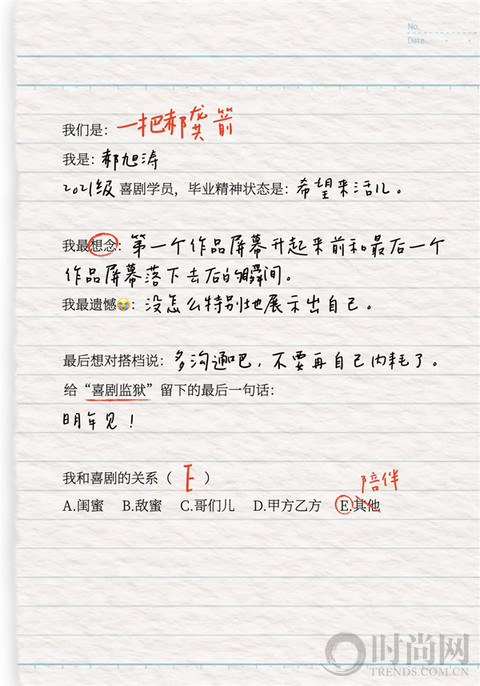 No.
Date
我们是：一把郝龚箭
我是：郝旭涛
2021级 喜剧学员，毕业精神状态是：希望来活儿。
我最想念：第一个作品屏幕升起来前和最后一个
作品屏幕落下去后的瞬间。
我最遗憾😭：没怎么特别地展示出自己。
最后想对搭档说：多沟通吧，不要再自己内耗了。
给“喜剧监狱”留下的最后一句话：
明年见！
我和喜剧的关系（ E ）
陪伴
A.闺蜜 B.敌蜜 C.哥们儿 D.甲方乙方 E.其他
时尚网
TRENDS.COM.CN